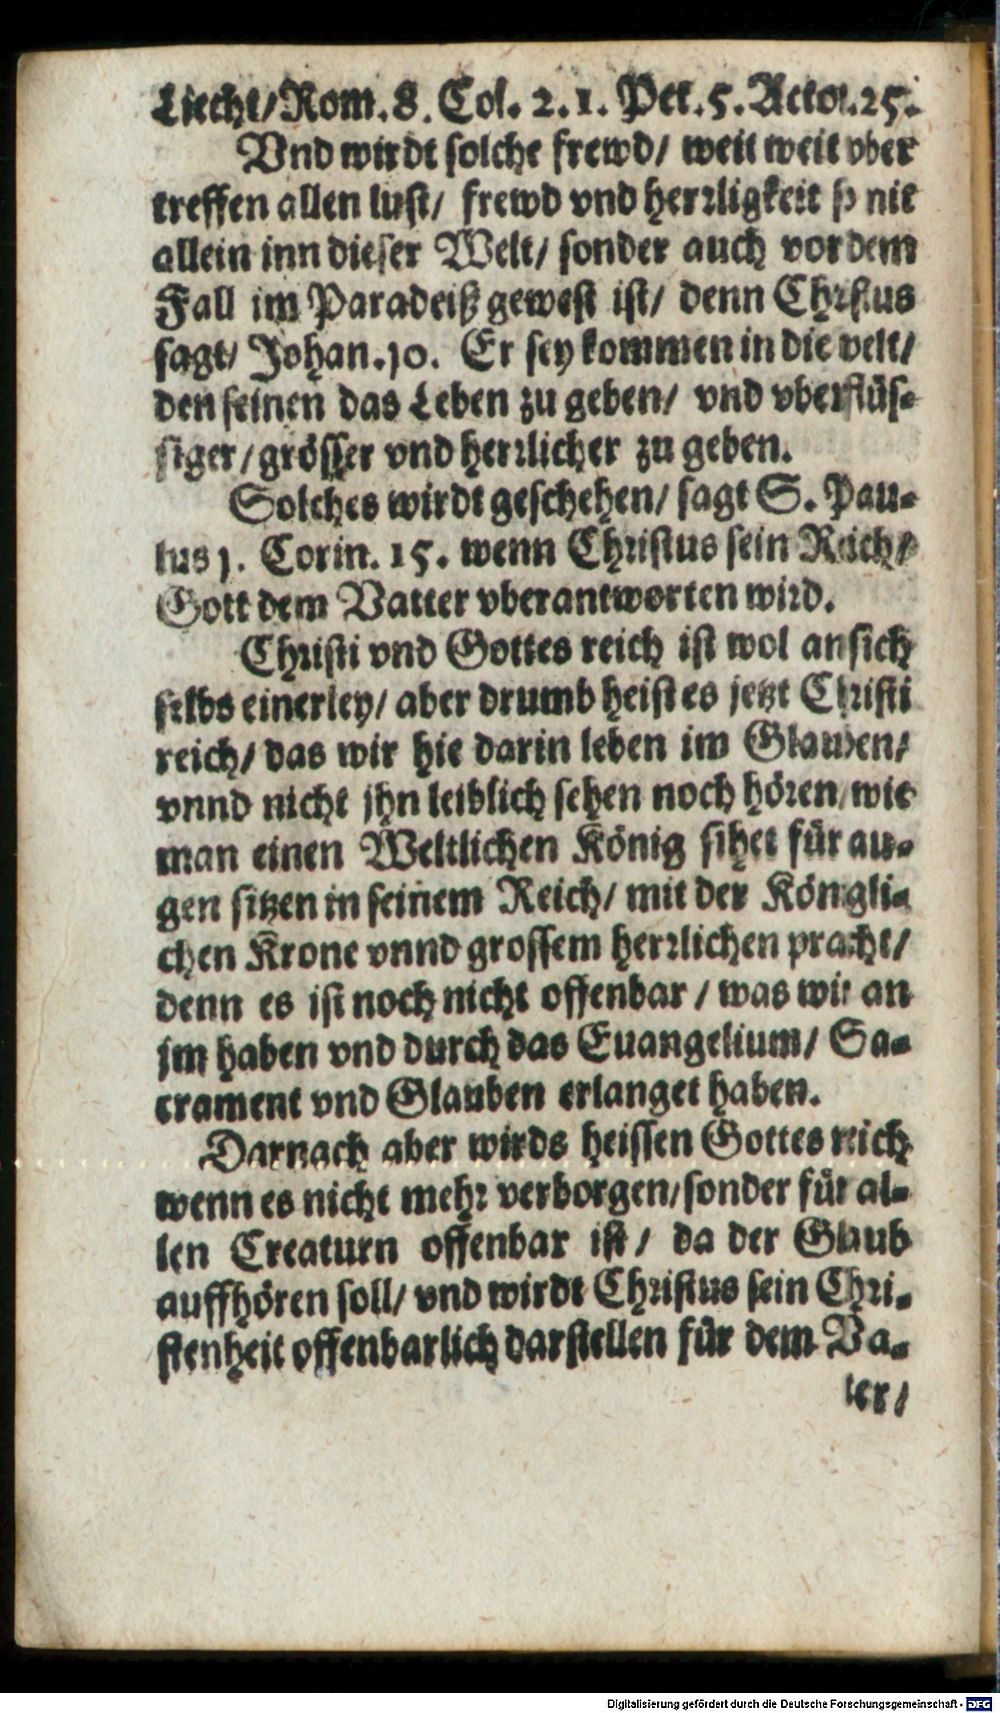 Liecht/ Rom. 8. Col. 2. 1. Pet. 5. Actor. 25.
Vnd wirdt solche frewd/ weit weit vber
treffen allen lust/ frewd vnd herrligkeit so nit
allein inn dieser Welt/ sonder auch vor dem
Fall im Paradeiß gewest ist/ denn Christus
sagt/ Johan. 10. Er sey kommen in die welt/
den seinen das Leben zu geben/ vnd vberflüs-
siger/ grösser vnd herrlicher zu geben.
Solches wirdt geschehen/ sagt S. Pau-
lus 1. Corin. 15. wenn Christus sein Reich/
Gott dem Vatter vberantworten wird.
Christi vnd Gottes reich ist wol an sich
selbs einerley/ aber drumb heist es jetzt Christi
reich/ das wir hie darin leben im Glauben/
vnnd nicht jhn leiblich sehen noch hören/ wie
man einen Weltlichen König sihet für au-
gen sitzen in seinem Reich/ mit der Köngli-
chen Krone vnnd grossem herrlichen pracht/
denn es ist noch nicht offenbar/ was wir an
jm haben vnd durch das Euangelium/ Sa-
crament vnd Glauben erlanget haben.
Darnach aber wirds heissen Gottes reich
wenn es nicht mehr verborgen/ sonder für al-
len Creaturn offenbar ist/ da der Glaub
auffhören soll/ vnd wirdt Christus sein Chri-
stenheit offenbarlich darstellen für dem Va-
ter/
Digitalisierung gefördert durch die Deutsche Forschungsgemeinschaft - DFG